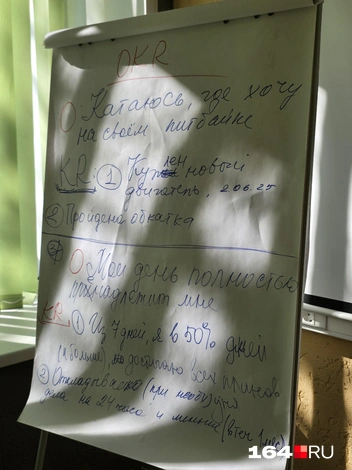 OKR
O Катаюсь, где хочу
на своём питбайке
KR: ① Куплен новый
двигатель,
② Пройдена обкатка
2)
O Мой день полностью
принадлежит мне
KR ① Из 7 дней, я в 50% дней
(и больше), но достигаю всех планов
② Откладываю (при необх)
дела на 24 часа и меньше
164 RU